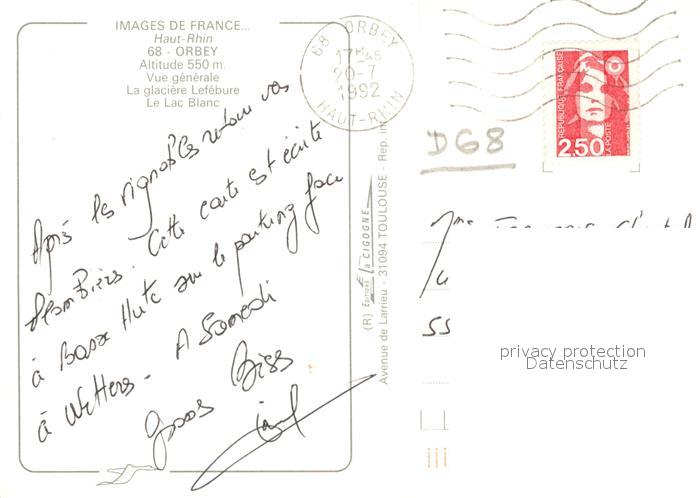 IMAGES DE FRANCE...
Haut-Rhin
68 - ORBEY
Altitude 550 m.
Vue générale
La glacière Lefébure
Le Lac Blanc
Après les vignobles retour vos
Plombières. Cette carte est écrite
à Basse Hutte sur le parking face
à Wetterer. A Samedi
Gros Biss
68 ORBEY
17H45
20-7
1992
HAUT-RHIN
D68
REPUBLIQUE FRANÇAISE
2,50
LA POSTE
(R) Editions La CIGOGNE
Avenue de Larrieu - 31094 TOULOUSE - Rep. in
Mme
55
privacy protection
Datenschutz